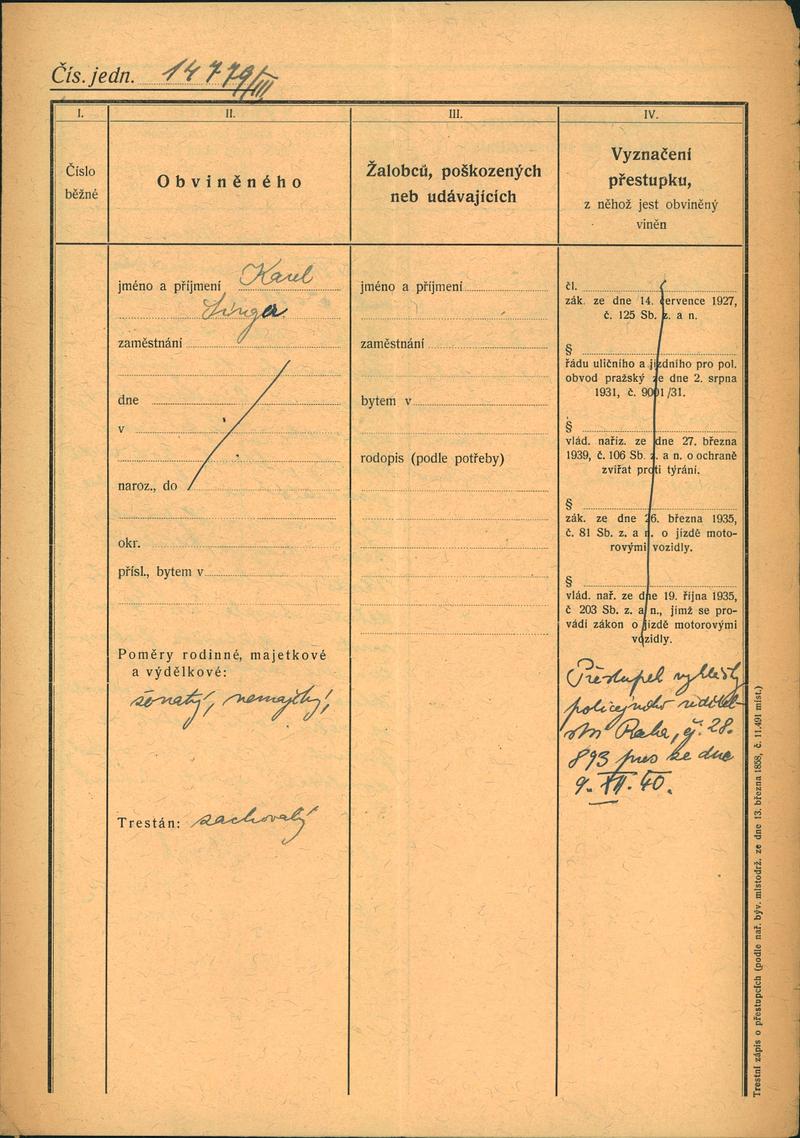 Čís. jedn. 14779/III
I.
II.
III.
IV.
Číslo
běžné
Obviněného
Žalobců, poškozených
neb udávajících
Vyznačení
přestupku,
z něhož jest obviněný
viněn
jméno a příjmení Karel
Singer
zaměstnání
dne
v
naroz., do
okr.
přísl., bytem v
Poměry rodinné, majetkové
a výdělkové:
ženatý, nemajetný,
Trestán: zachovalý
jméno a příjmení
zaměstnání
bytem v
rodopis (podle potřeby)
čl.
zák. ze dne 14. července 1927,
č. 125 Sb. z. a n.
§
řádu uličního a jízdního pro pol.
obvod pražský ze dne 2. srpna
1931, č. 9001/31.
§
vlád. naříz. ze dne 27. března
1939, č. 106 Sb. z. a n. o ochraně
zvířat proti týrání.
§
zák. ze dne 26. března 1935,
č. 81 Sb. z. a n. o jízdě moto-
rovými vozidly.
§
vlád. nař. ze dne 19. října 1935,
č 203 Sb. z. a n., jímž se pro-
vádí zákon o jízdě motorovými
vozidly.
Přestupek vyhlášky
policejního ředitel-
ství Praha, č. 28.
893 pres ze dne
9. XII. 40.
Trestní zápis o přestupcích (podle nař. býv. místodrž. ze dne 13. března 1858, č. 11.491 míst.)